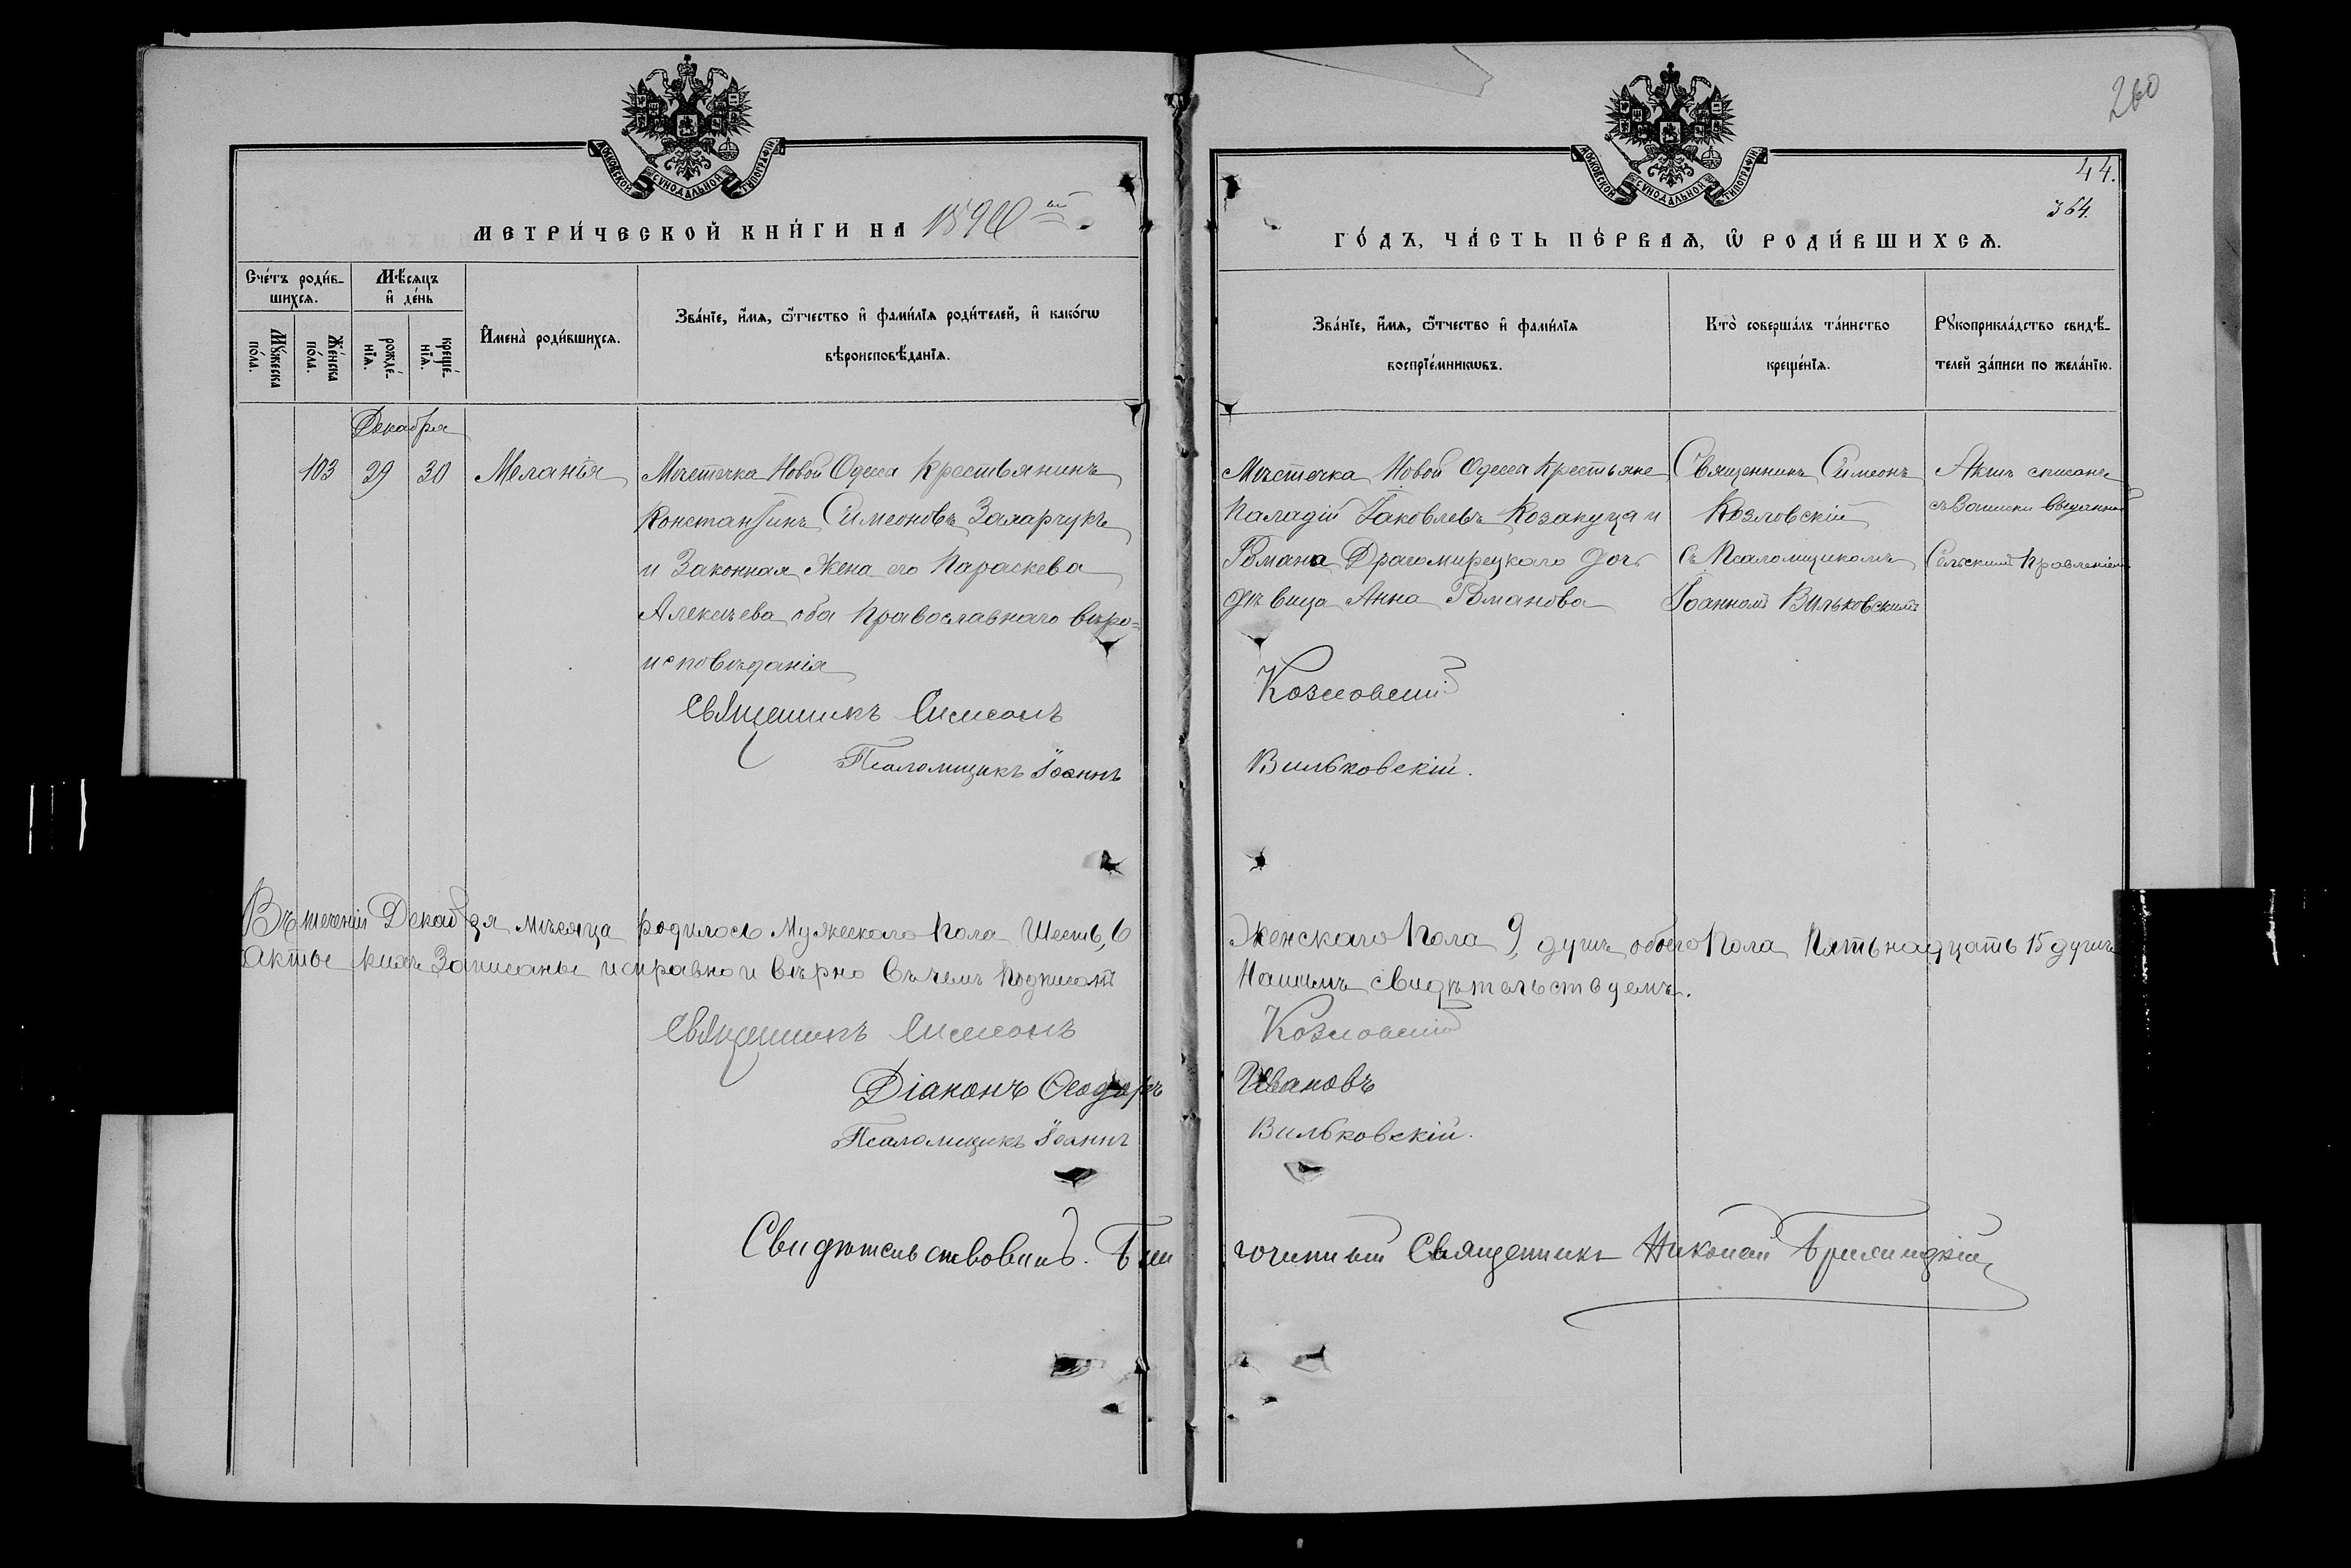 260
44.
364.
МОСКОВСКОЙ СѴНОДАЛЬНОЙ ТИПОГРАФІИ.
МЕТРИ́ЧЕСКОЙ КНИ́ГИ НА
МОСКОВСКОЙ СѴНОДАЛЬНОЙ ТИПОГРАФІИ.
ГО́ДЪ, ЧА́СТЬ ПЕ́РВАѦ, Ѡ҆ РОДИ́ВШИХСѦ.
Сче́тъ роди́в-
шихсѧ.
Мѣ́сѧцъ
и҆ де́нь
Мꙋ́жеска
по́ла.
Же́нска
по́ла.
рожде́-
нїѧ.
креще́-
нїѧ.
И҆мена̀ роди́вшихсѧ.
Зва́нїе, и҆́мѧ, ѻ҆́тчество и҆ фами́лїѧ роди́телей, и҆ како́гѡ
вѣроисповѣ́данїѧ.
Зва́нїе, и҆́мѧ, ѻ҆́тчество и҆ фами́лїѧ
воспрїе́мникѡвъ.
Кто̀ соверша́лъ та́инство
креще́нїѧ.
Рꙋкоприкла́дство свидѣ́-
телей за́писи по жела́нїю.
Декабря
103 29 30 Меланія
Мѣстечка Новой Одесса Крестьянинъ
Константинъ Симеоновъ
и Законная Жена его Параскева
Алексѣева оба Православнаго вѣро=
исповѣданія
Мѣстечка Новой Одесса Крестьяне
Паладій Іаковлевъ Козакуца и
Романа Драгомирецкаго дочь
дѣвица Анна Романова
Священникъ Симеонъ
Козловскій
съ Псаломщикомъ
Іоанномъ Вильковскимъ
Актъ списанъ
съ Записки выданной
Сельскимъ Правленіемъ
Священникъ Симеонъ Козловскій
Псаломщикъ Іоаннъ Вильковскій.
Въ теченіи Декабря мѣсяца родилось Мужескаго Пола Шесть, 6 Женскаго Пола 9, душъ обоего Пола Пятьнадцать 15 душъ
Акты Записаны исправно и вѣрно въ чемъ Подписомъ Нашимъ свидѣтельствуемъ.
Священникъ Симеонъ Козловскій
Діаконъ Ѳеодоръ Ивановъ
Псаломщикъ Іоаннъ Вильковскій.
Свидѣтельствовалъ. Благочинный Священникъ Николай